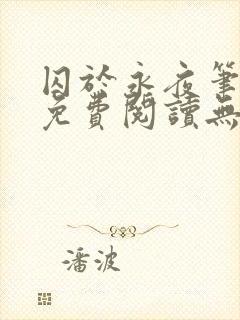 囚於永夜筆
免費閱讀無
潘波